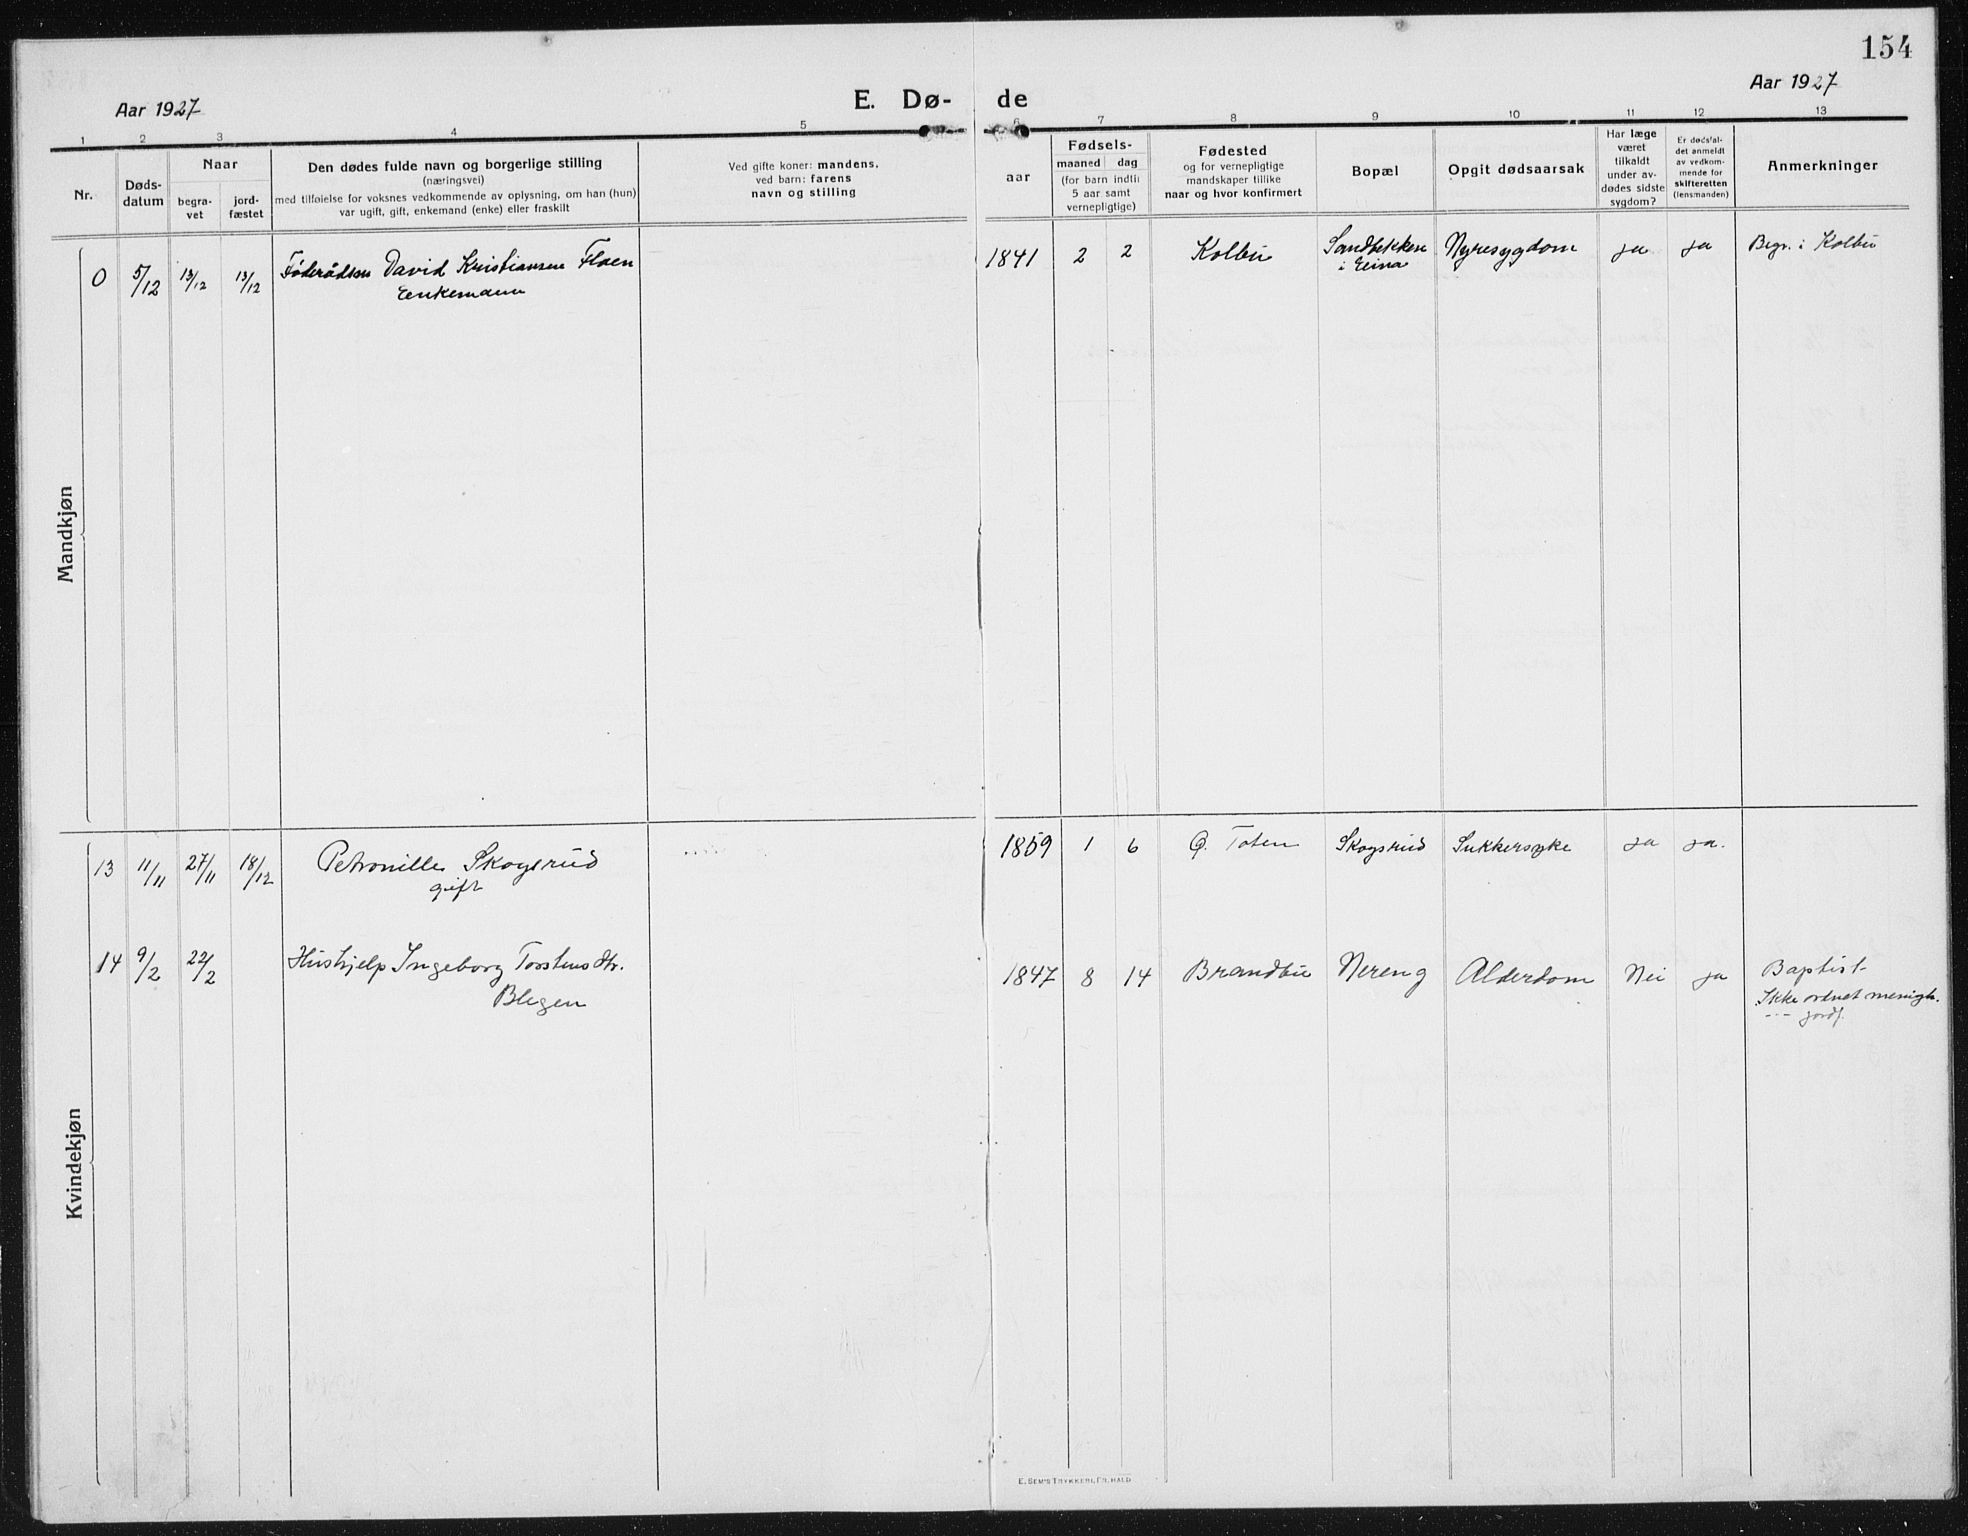 154
Aar 1927
E. Dø-
de
Aar 1927
1 2 3 4 5 6 7 8 9 10 11 12 13
Nr.
Døds-
datum
Naar
begra-
vet
jord-
fæstet
Den dødes fulde navn og borgerlige stilling
(næringsvei)
med tilføielse for voksnes vedkommende av oplysning, om han (hun)
var ugift, gift, enkemand (enke) eller fraskilt
Ved gifte koner: mandens,
ved barn: farens
navn og stilling
aar
Fødsels-
maaned dag
(for barn indtil
5 aar samt
vernepligtige)
Fødested
og for vernepligtige
mandskaper tillike
naar og hvor konfirmert
Bopæl
Opgit dødsaarsak
Har læge
været
tilkaldt
under av-
dødes sidste
sygdom?
Er dødsfal-
det anmeldt
av vedkom-
mende for
skifteretten
(lensmanden)
Anmerkninger
Mandkjøn
0 5/12 13/12 13/12 Føderådsm David Kristiansen Flaen
Enkemann
1841 2 2 Kolbu Sandbekken
i Eina
Nyresygdom ja ja Begr. i Kolbu
Kvindekjøn
13 11/11 27/11 18/12 Petronille Skogsrud
gift
1859 1 6 Ø. Toten Skogsrud Sukkersyke ja ja.
14 9/2 22/2 Hushjelp Ingeborg Torstensdtr.
Blegen
1847 8 14 Brandbu Nereng Alderdom Nei ja Baptist
Ikke ordnet menigh.
--- jordf.
E. SEM'S TRYKKERI, FR. HALD